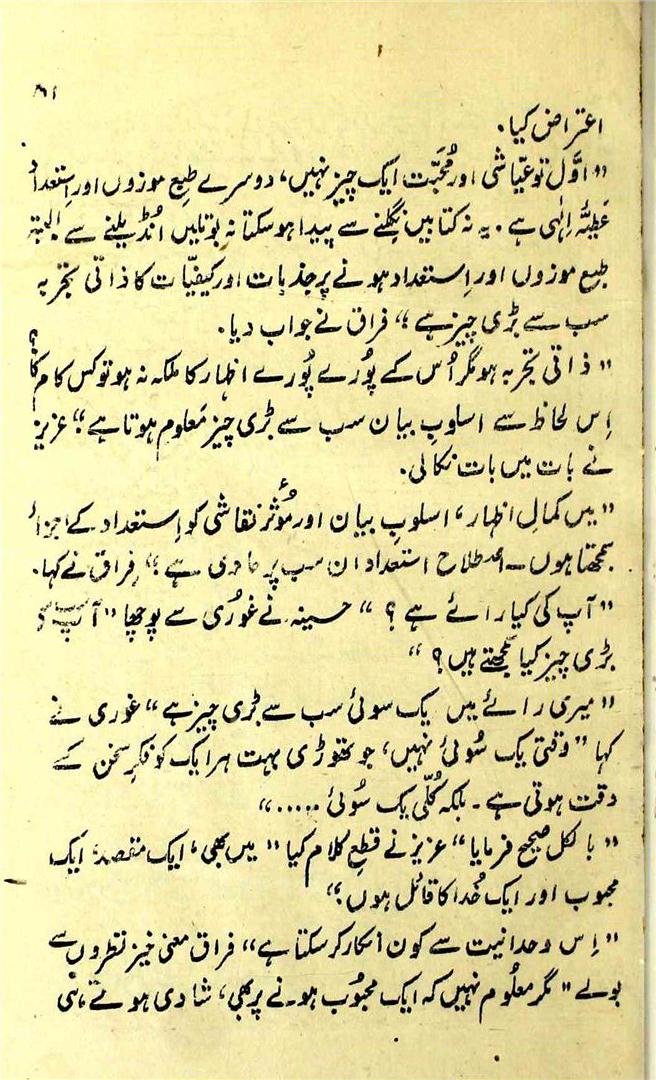 اعتراض کیا۔
"اوّل تو عیّاشی اور مُحبّت ایک چیز نہیں، دوسرے طبِع موزوں اور اِستعداد
عَطیّہ اِلٰہی ہے۔ یہ نہ کتابیں نِگلنے سے پیدا ہو سکتا نہ بوتلیں اُنڈیلنے سے البتہ
طبعِ موزوں اور اِستعداد ہونے پر جذبات اور کیفیّات کا ذاتی تجربہ
سب سے بڑی چیز ہے؛" فراق نے جواب دیا۔
"ذاتی تجربہ ہو مگر اُس کے پُورے پُورے اظہار کا ملکہ نہ ہو تو کس کام کا؟
اِس لحاظ سے اسلوبِ بیان سب سے بڑی چیز مَعلوم ہوتا ہے؛" عزیز
نے بات میں بات نکالی۔
"میں کمالِ اظہار، اسلوبِ بیان اور مُؤثر نقاشی کو اِستعداد کے اجزاء
سمجھتا ہوں۔ اصطلاح استعداد ان سب پر حاوی ہے؛" فراق نے کہا۔
"آپ کی کیا رائے ہے؟" حسینہ نے غوری سے پوچھا "آپ سب سے
بڑی چیز کیا سمجھتے ہیں؟"
"میری رائے میں یک سوئی سب سے بڑی چیز ہے" غوری نے
کہا "وقتی یک سُوئی نہیں، جو تھوڑی بہت ہر ایک کو فکرِ سخن کے
وقت ہوتی ہے۔ بلکہ کُلّی یک سُوئی ....."
"بالکل صحیح فرمایا" عزیز نے قطعِ کلام کیا "میں بھی، ایک مقصد، ایک
محبوب اور ایک خُدا کا قائل ہوں؛"
"اِس وحدانیت سے کون انکار کر سکتا ہے" فراق معنی خیز نظروں سے
بولے "مگر معلُوم نہیں کہ ایک محبُوب ہونے پر بھی، شادی ہوتے ہی